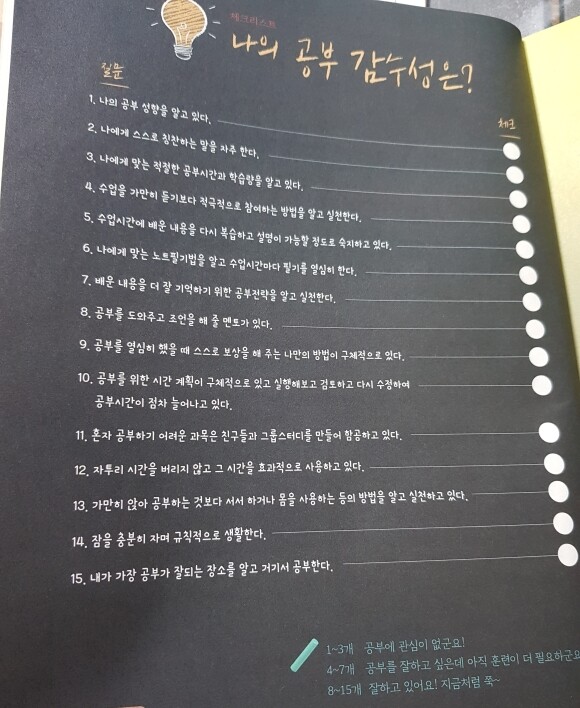 체크리스트
나의 공부 감수성은?
질문
체크
1. 나의 공부 성향을 알고 있다.
2. 나에게 스스로 칭찬하는 말을 자주 한다.
3. 나에게 맞는 적절한 공부시간과 학습량을 알고 있다.
4. 수업을 가만히 듣기보다 적극적으로 참여하는 방법을 알고 실천한다.
5. 수업시간에 배운 내용을 다시 복습하고 설명이 가능할 정도로 숙지하고 있다.
6. 나에게 맞는 노트필기법을 알고 수업시간마다 필기를 열심히 한다.
7. 배운 내용을 더 잘 기억하기 위한 공부전략을 알고 실천한다.
8. 공부를 도와주고 조언을 해 줄 멘토가 있다.
9. 공부를 열심히 했을 때 스스로 보상을 해 주는 나만의 방법이 구체적으로 있다.
10. 공부를 위한 시간 계획이 구체적으로 있고 실행해보고 검토하고 다시 수정하여
공부시간이 점차 늘어나고 있다.
11. 혼자 공부하기 어려운 과목은 친구들과 그룹스터디를 만들어 함공하고 있다.
12. 자투리 시간을 버리지 않고 그 시간을 효과적으로 사용하고 있다.
13. 가만히 앉아 공부하는 것보다 서서 하거나 몸을 사용하는 등의 방법을 알고 실천하고 있다.
14. 잠을 충분히 자며 규칙적으로 생활한다.
15. 내가 가장 공부가 잘되는 장소를 알고 거기서 공부한다.
1~3개 공부에 관심이 없군요!
4~7개 공부를 잘하고 싶은데 아직 훈련이 더 필요하군요
8~15개 잘하고 있어요! 지금처럼 쭉~